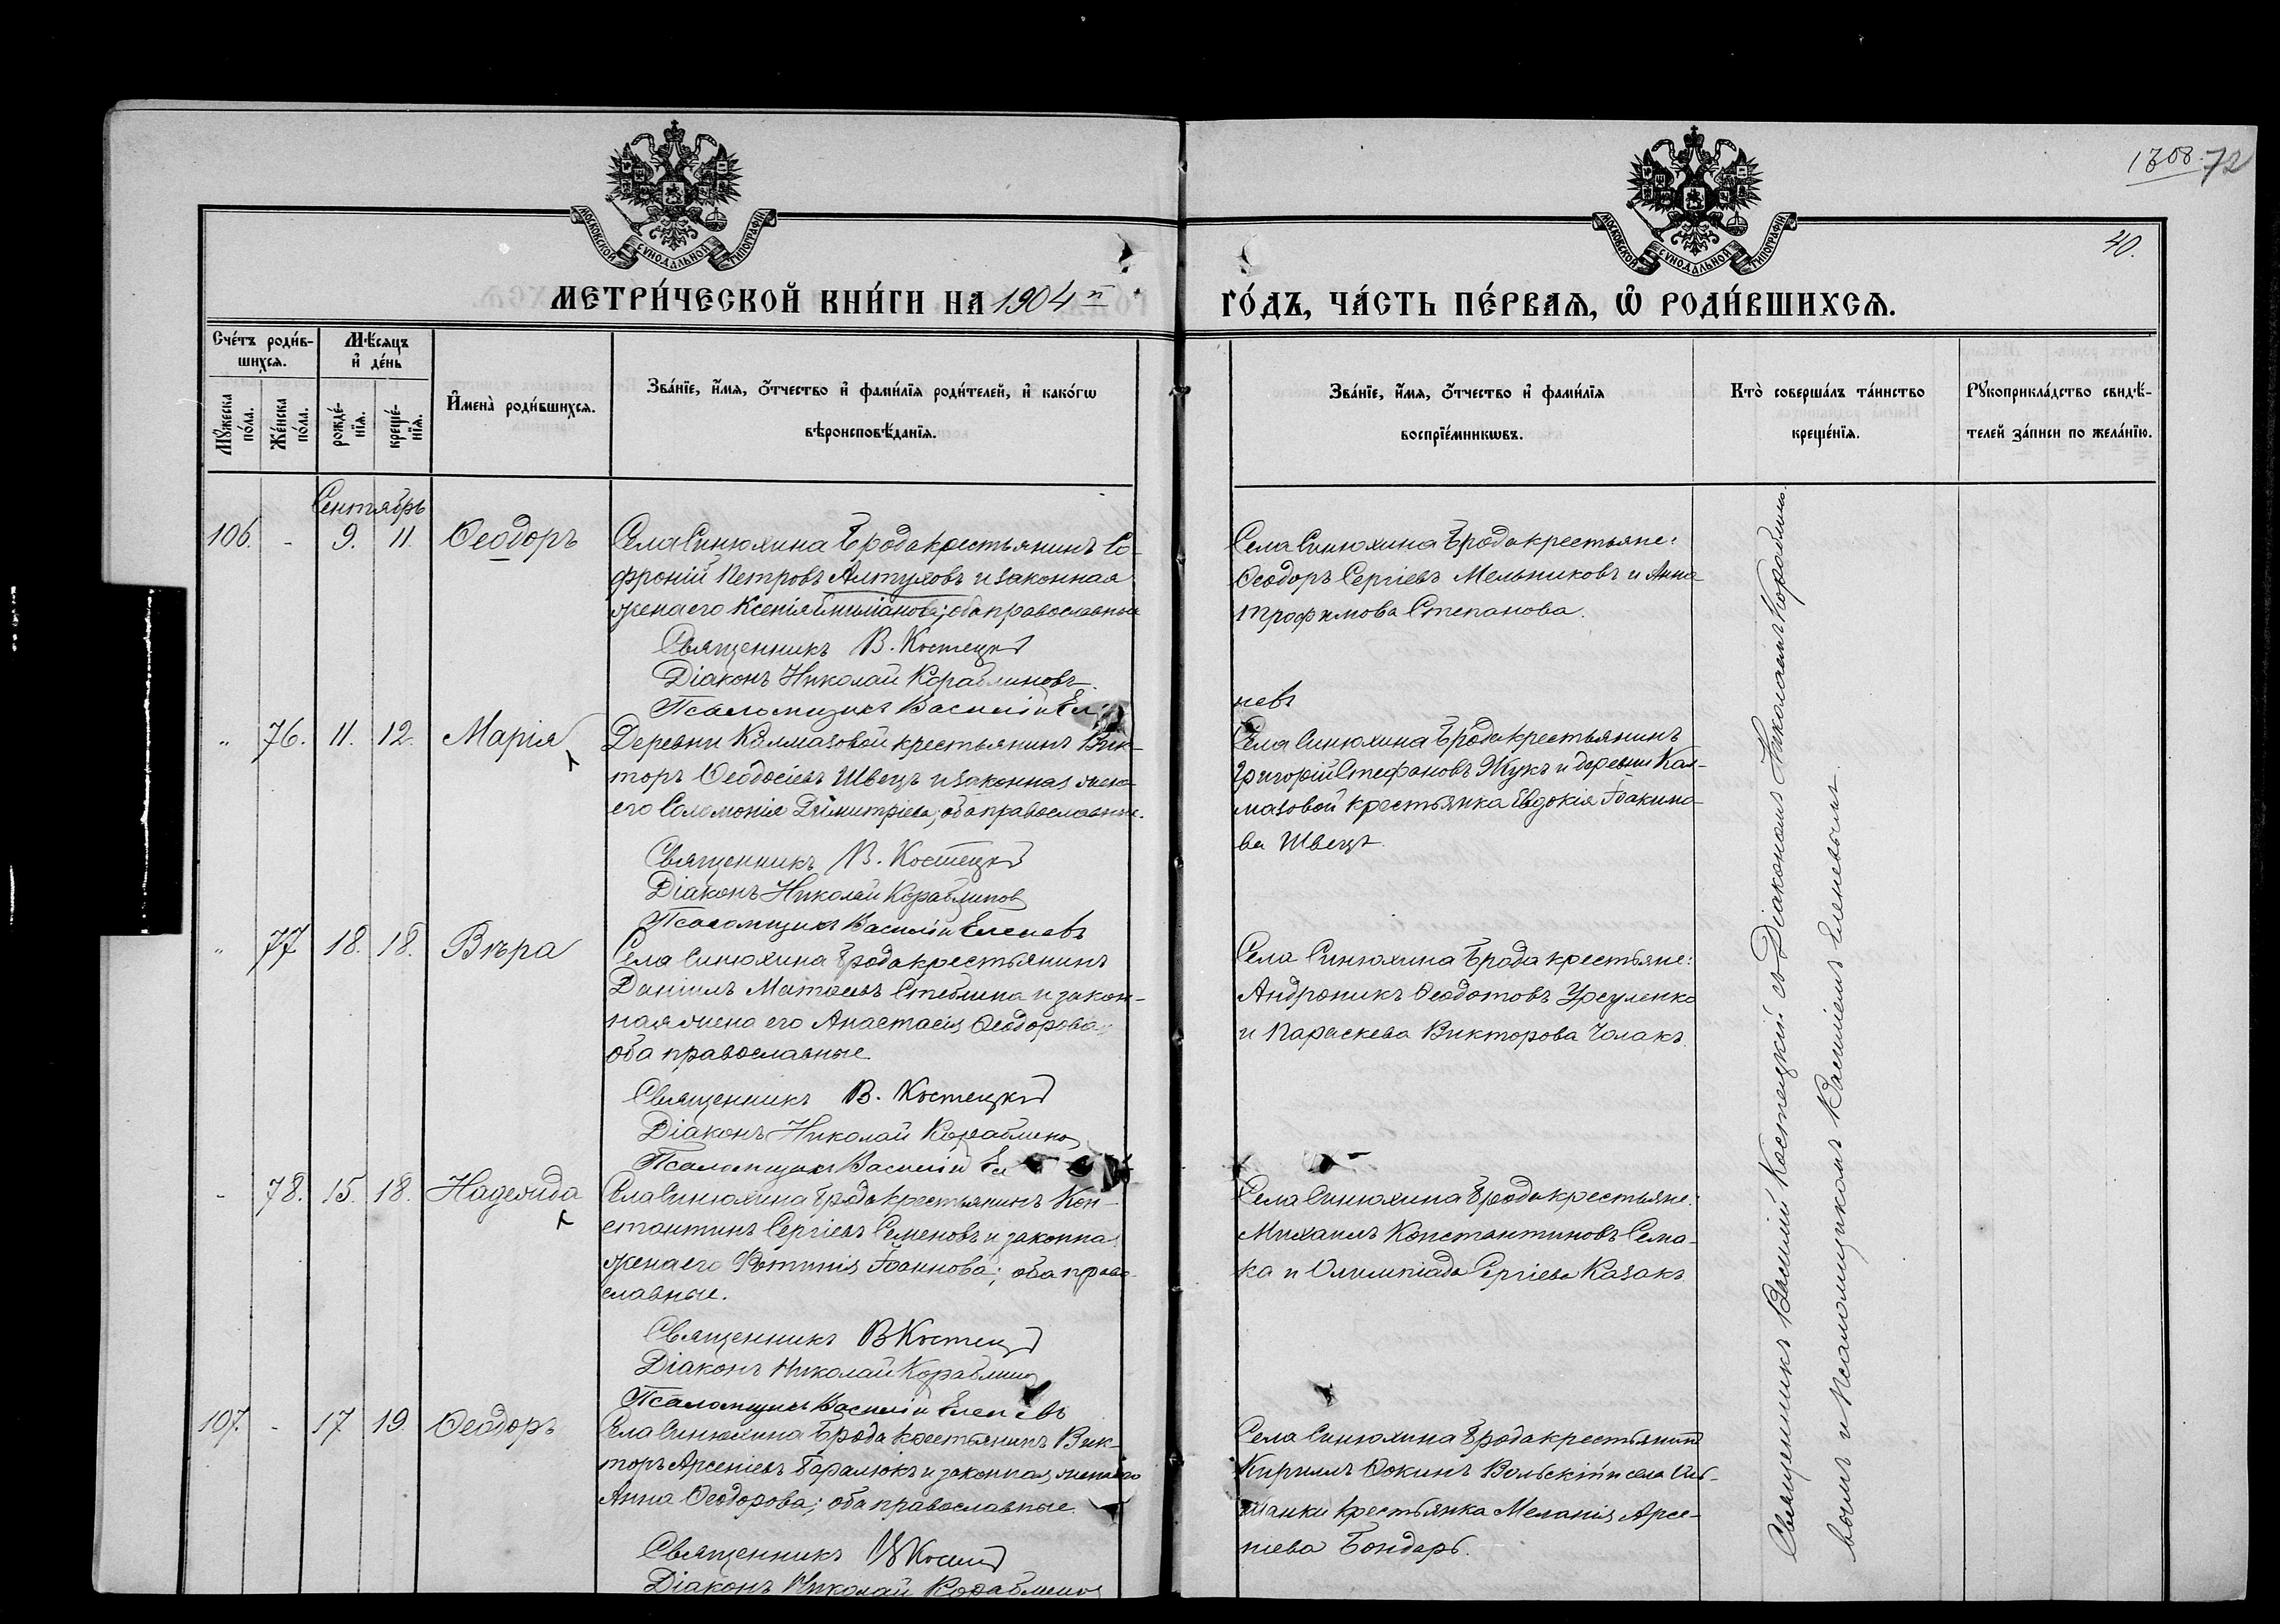 МОСКОВСКОЙ СѴНОДАЛЬНОЙ ТИПОГРАФІИ
МОСКОВСКОЙ СѴНОДАЛЬНОЙ ТИПОГРАФІИ
1308. 72
40.
МЕТРИ́ЧЕСКОЙ КНИ́ГИ НА 1904 й
ГО́ДЪ, ЧА́СТЬ ПЕ́РВАѦ, Ѡ РОДИ́ВШИХСѦ.
Сче́тъ роди́в-
шихсѧ.
Мꙋ́жеска по́ла.
Же́нска по́ла.
Мѣ́сѧцъ
и҆ де́нь
рожде́-
нїѧ.
креще́-
нїѧ.
И҆мена̀ роди́вшихсѧ.
Зва́нїе, и҆́мѧ, ѻ҆́тчество и҆ фами́лїѧ роди́телей, и҆ како́гѡ
вѣроисповѣ́данїѧ.
Зва́нїе, и҆́мѧ, ѻ҆́тчество и҆ фами́лїѧ
воспрїе́мникѡвъ.
Кто̀ соверша́лъ та́инство
креще́нїѧ.
Рꙋкоприкла́дство свидѣ́-
телей за́писи по жела́нїю.
Сентябрь
106. - 9. 11. Ѳеодоръ
Села Синюхина Брода крестьянинъ Со-
фроній Петровъ Алтуховъ и законная
жена его Ксенія; оба православные
Священникъ В. Костецкій
Діаконъ Николай Кораблиновъ
Псаломщикъ Василій Еле-
Села Синюхина Брода крестьяне:
Ѳеодоръ Сергіевъ Мельниковъ и Анна
Трофимова Степанова.
невъ
" 76. 11. 12. Марія
Деревни Калмазовой крестьянинъ Вик-
торъ Ѳеодосіевъ Швецъ и законная жена
его Соломонія Димитріева; оба православные.
Священникъ В. Костецкій
Діаконъ Николай Кораблинов
Псаломщикъ Василій Еленевъ
Села Синюхина Брода крестьянинъ
Григорій Стефановъ Жукъ и деревни Кал-
мазовой крестьянка Евдокія Іоакимо-
ва Швецъ.
" 77 18. 18. Вѣра
Села Синюхина Брода крестьянинъ
Даніилъ Матѳеевъ Стеблина и закон-
ная жена его Анастасія Ѳеодорова;
оба православные.
Священникъ В. Костецкій
Діаконъ Николай Кораблинов
Псаломщикъ Василій Ел
Села Синюхина Брода крестьяне:
Андроникъ Ѳеодотовъ Урсуленко
и Параскева Викторова Чолакъ.
- 78. 15. 18. Надежда
Села Синюхина Брода крестьянинъ Кон-
стантинъ Сергіевъ Семеновъ и законная
жена его Фотинія Іоаннова; оба право-
славные.
Священникъ В Костецкій
Діаконъ Николай Кораблинов
Псаломщикъ Василій Еленевъ
Села Синюхина Брода крестьяне:
Михаилъ Константиновъ Сема-
ка и Олимпіада Сергіева Казакъ.
107. - 17 19. Ѳеодоръ
Села Синюхина Брода крестьянинъ Вик-
торъ Арсеніевъ Баралюкъ и законная жена его
Анна Ѳеодорова; оба православные.
Священникъ В Костецкій
Діаконъ Николай Кораблинов
Села Синюхина Брода крестьянинъ
Кириллъ Ѳокинъ Вольскій и села Оль-
шанки крестьянка Меланія Арсе-
ніева Бондарь.
Священникъ Василій Костецкій съ Діакономъ Николаемъ Кораблино-
вымъ и Псаломщикомъ Василіемъ Еленевымъ.